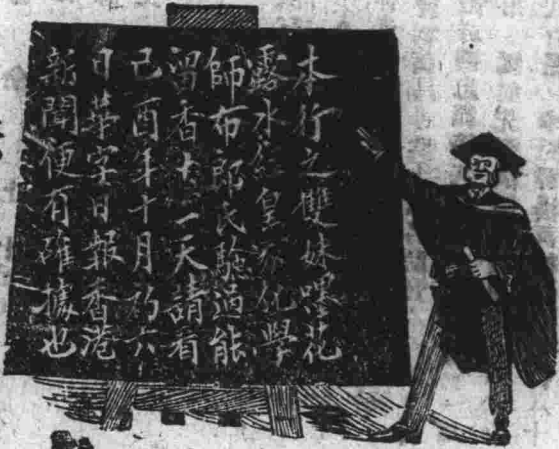 本行之雙妹嘜花
露水經皇家化學
師布郎氏驗過能
留香十一天請看
己酉年十月初六
日華字日報香港
新聞便有確據也